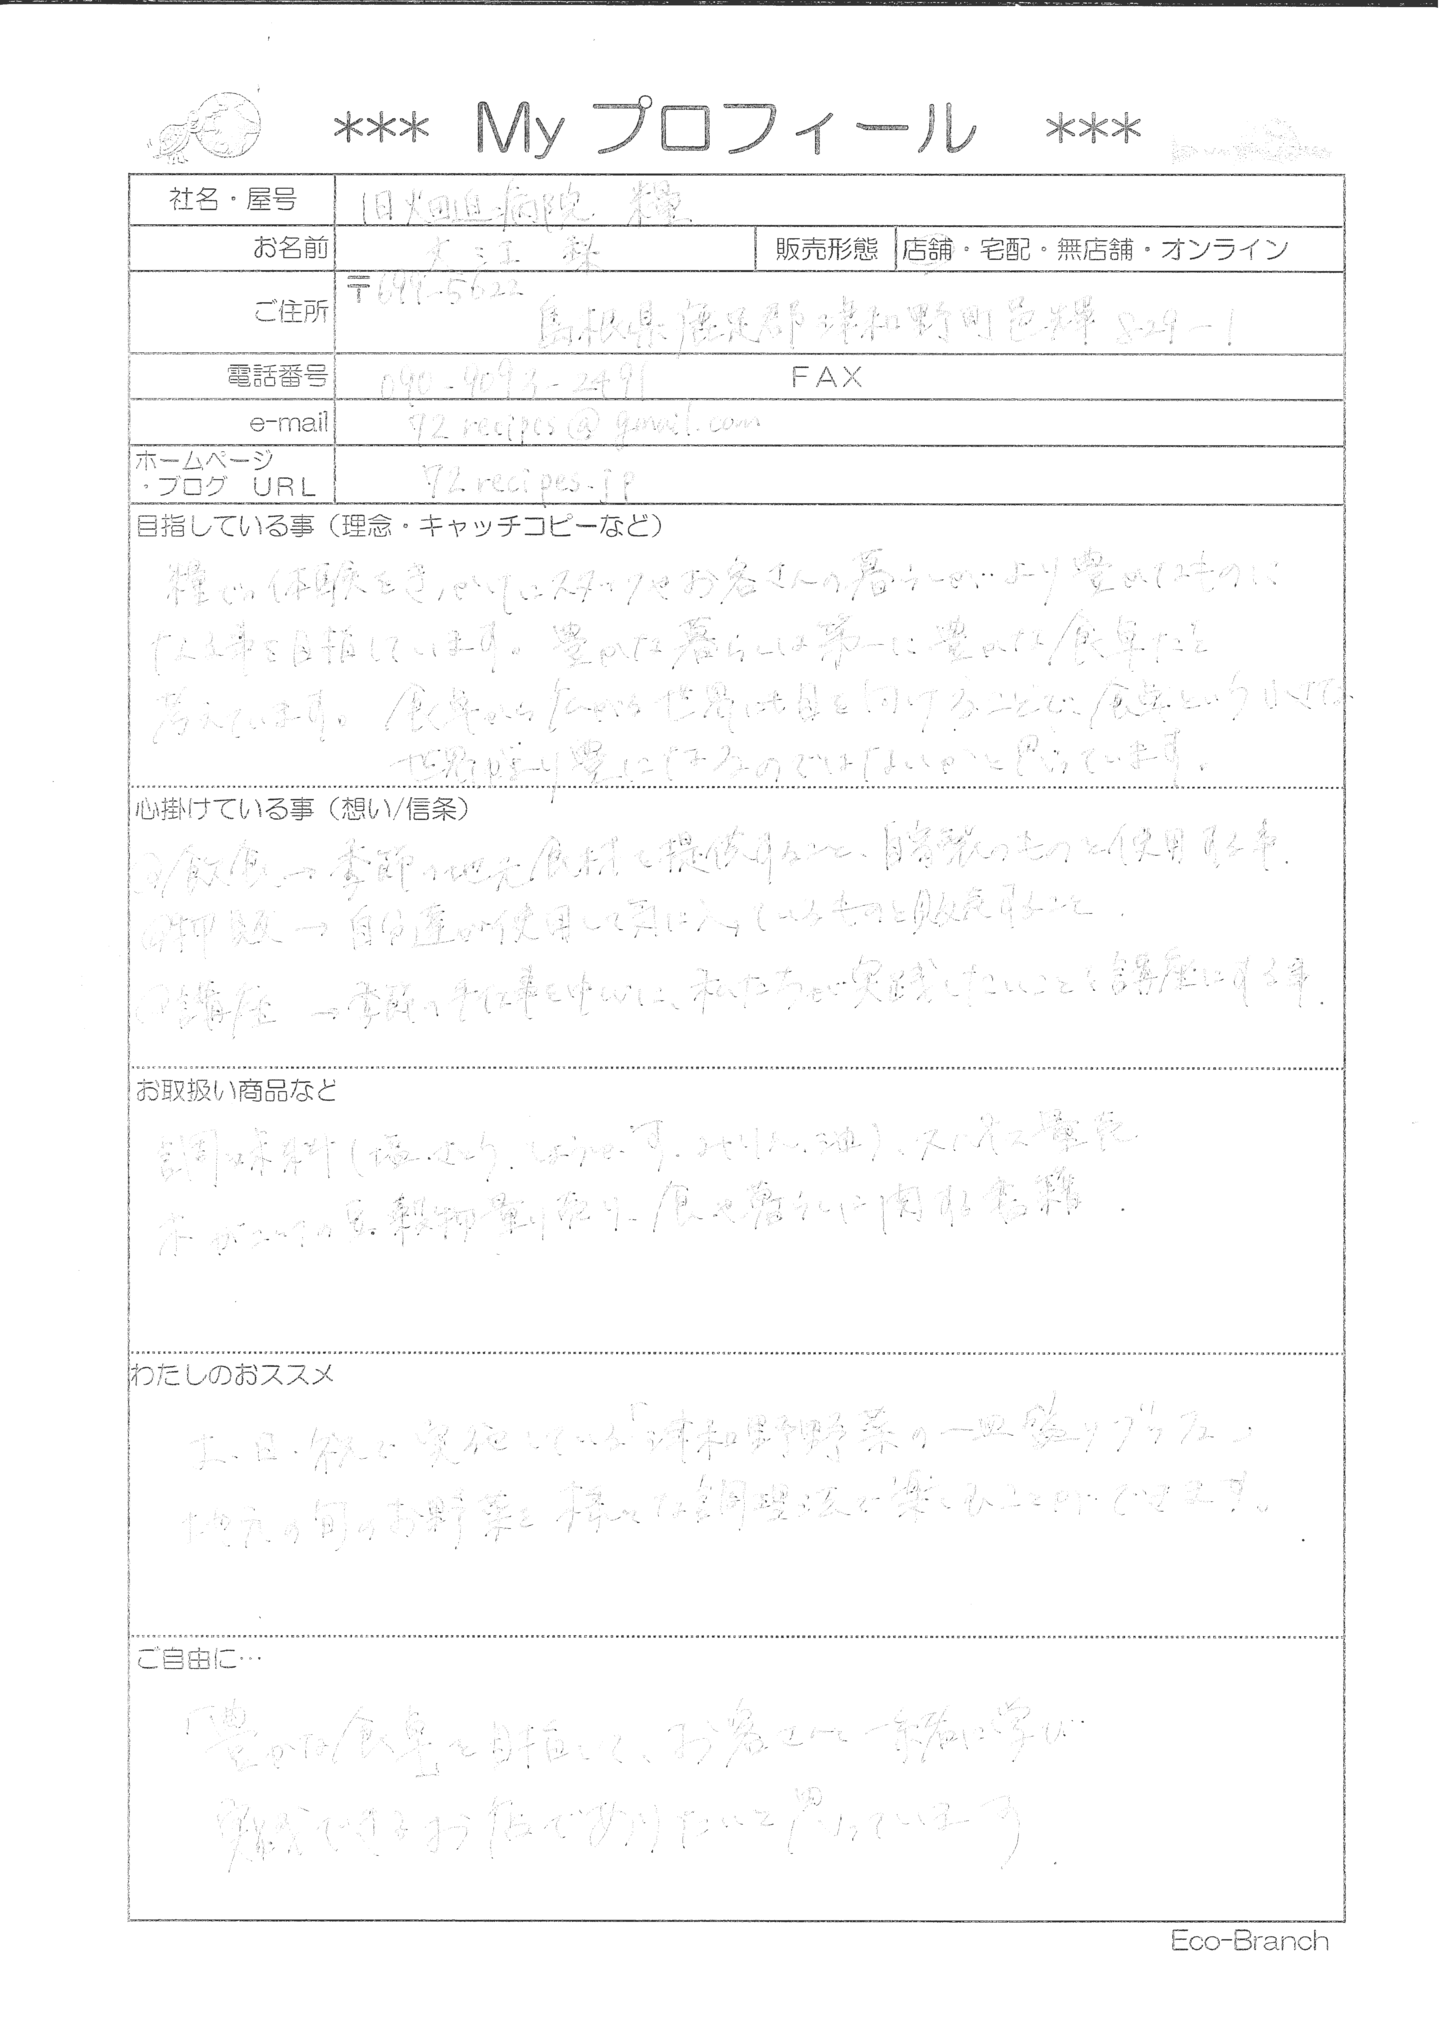 *** My プロフィール ***
社名・屋号 旧畑迫病院 糧
お名前 大江 販売形態 店舗・宅配・無店舗・オンライン
〒699-5622
ご住所 島根県鹿足郡津和野町邑輝829-1
電話番号 090-9093-2491 FAX
e-mail 72recipes@gmail.com
ホームページ
・ブログ URL 72recipes.jp
目指している事（理念・キャッチコピーなど）
糧での体験をきっかけにスタッフやお客さんの暮らしが、より豊かなものに
なる事を目指しています。豊かな暮らしは第一に豊かな食卓だと
考えています。食卓から広がる世界にも目を向けることで、食卓という小さな
世界がより豊になるのではないかと思っています。
心掛けている事（想い/信条）
飲食→季節の地元食材を提供すること、自家製のものを使用する事.
物販→自分達が使用して気に入っているものを販売すること.
講座→季節の手仕事を中心に、私たちが実践したいことを講座にする事.
お取扱い商品など
調味料(塩.さとう.しょうゆ.す.みりん.油)、スパイス量売
米 の豆.穀物量り売り、食や暮らしに関する書籍.
わたしのおススメ
土、日、祝に実施している「津和野野菜の一皿盛りブッフェ」
地元の旬のお野菜を様々な調理法で楽しむことができます。
ご自由に…
「豊かな食卓」を目指して、お客さんと一緒に学び
実践できるよう 店でありたいと思っています.
Eco-Branch